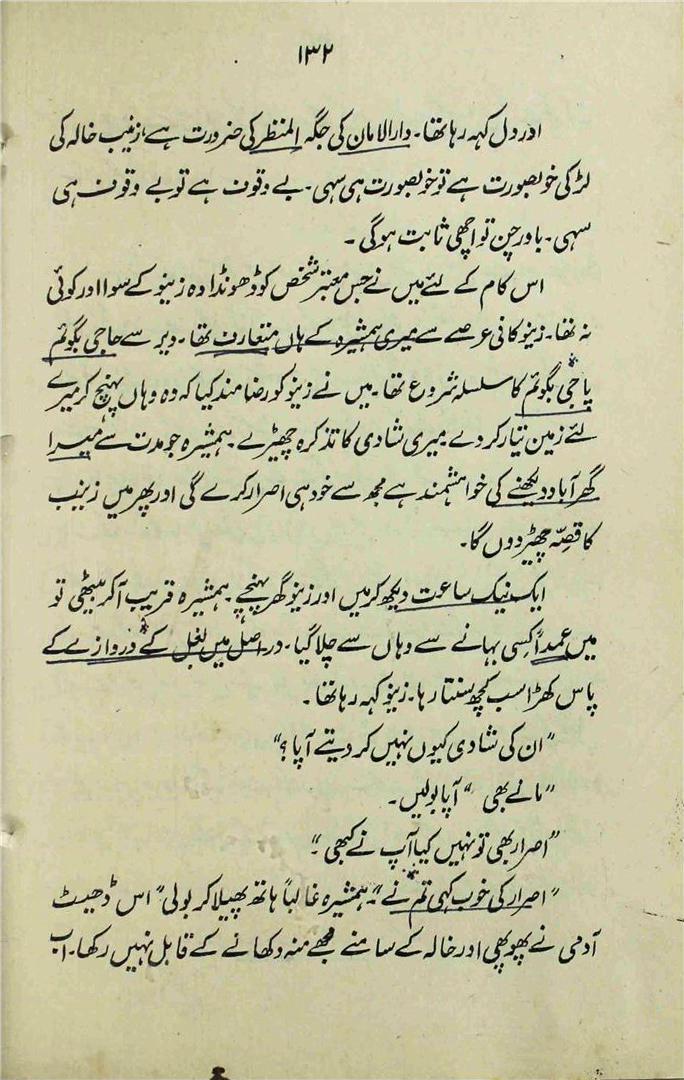 ۱۳۲
اور دل کہہ رہا تھا۔ دارالامان کی جگہ المنظر کی ضرورت ہے، زینب خالہ کی
لڑکی خوبصورت ہے تو خوبصورت ہی سہی۔ بے وقوف ہے تو بے وقوف ہی
سہی۔ باورچن تو اچھی ثابت ہوگی۔
اس کام کے لئے میں نے جس معتبر شخص کو ڈھونڈا وہ زینو کے سوا اور کوئی
نہ تھا۔ زینو کافی عرصے سے میری ہمشیرہ کے ہاں متعارف تھا۔ دیر سے حاجی بگوئم
پاجی بگوئم کا سلسلہ شروع تھا۔ میں نے زینو کو رضا مند کیا کہ وہ وہاں پہنچ کر میرے
لئے زمین تیار کر دے میری شادی کا تذکرہ چھیڑے۔ ہمشیرہ جو مدت سے میرا
گھر آباد دیکھنے کی خواہشمند ہے مجھ سے خود ہی اصرار کرے گی اور پھر میں زینب
کا قصّہ چھیڑ دوں گا۔
ایک نیک ساعت دیکھ کر میں اور زینو گھر پہنچے۔ ہمشیرہ قریب آکر بیٹھی تو
میں عمداً کسی بہانے سے وہاں سے چلا گیا۔ در اصل میں بغل کے دروازے کے
پاس کھڑا سب کچھ سنتا رہا۔ زینو کہہ رہا تھا۔
"ان کی شادی کیوں نہیں کر دیتے آپا؟"
"مانے بھی" آپا بولیں۔
"اصرار بھی تو نہیں کیا آپ نے کبھی۔"
"اصرار کی خوب کہی تم نے" ہمشیرہ غالباً ہاتھ پھیلا کر بولی "اس ڈھیٹ
آدمی نے پھوپھی اور خالہ کے سامنے مجھے منہ دکھانے کے قابل نہیں رکھا۔ اب